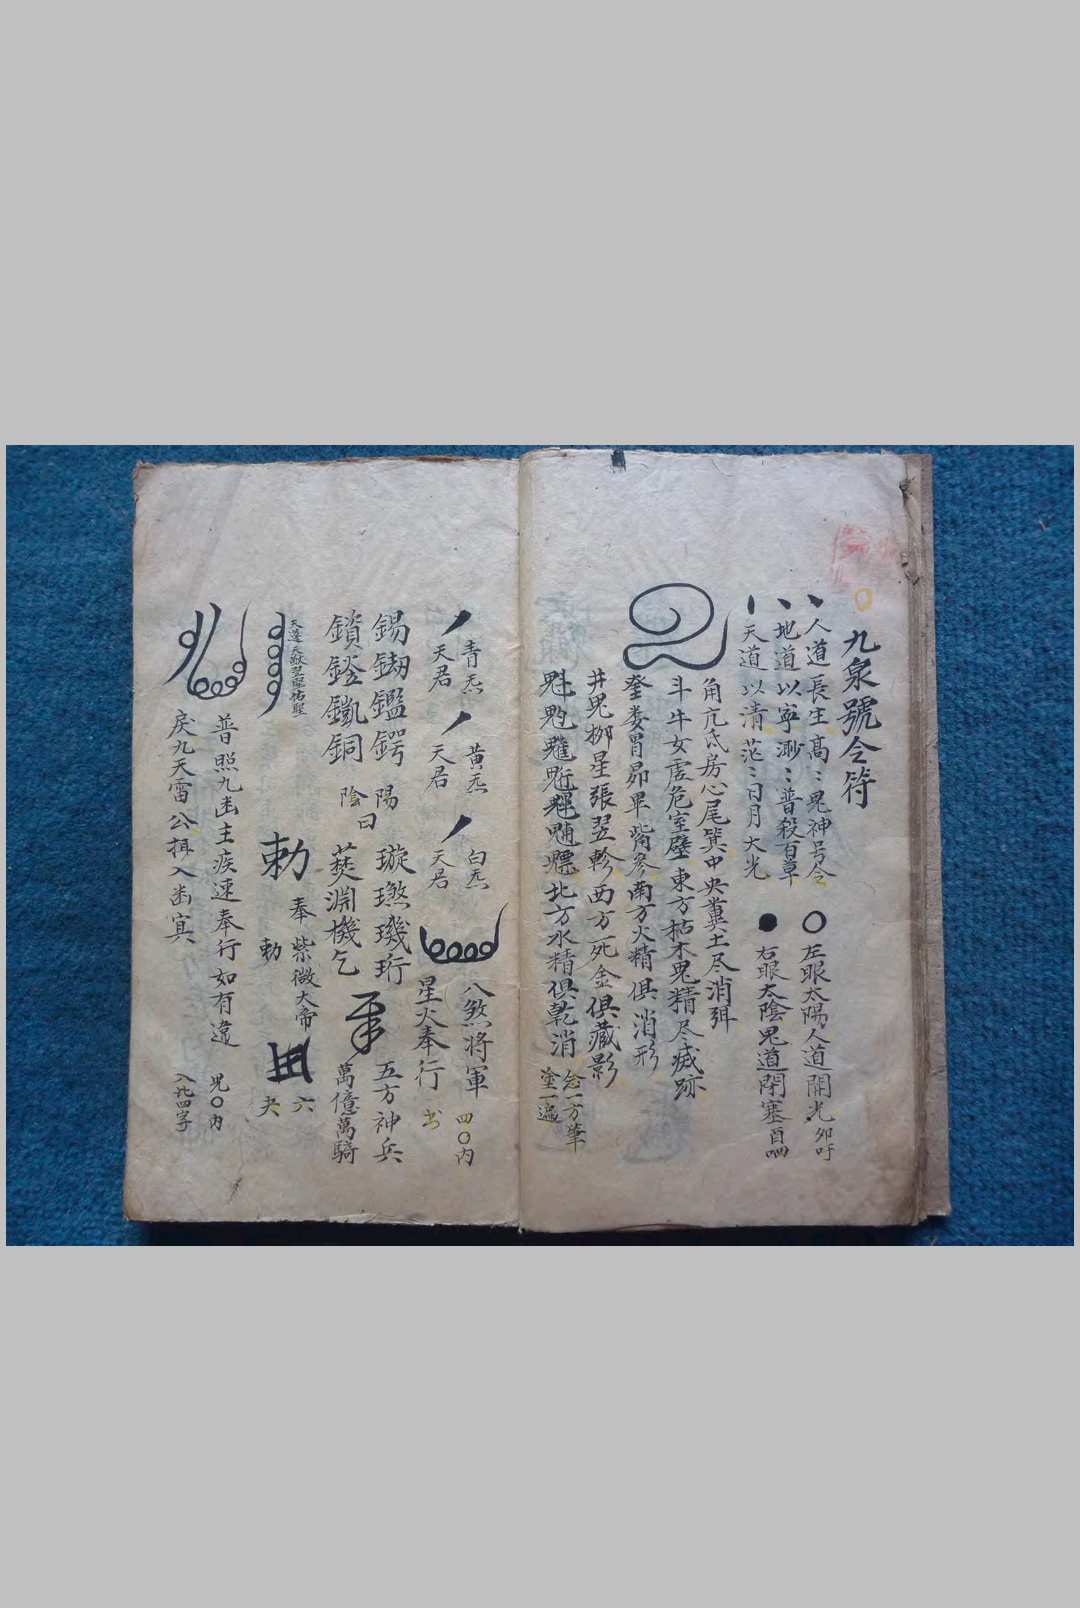 九泉號令符
人道長生高〻鬼神号令
地道以寧渺〻普殺百草
天道以清茫〻日月大光
左眼太陽人道開光 卯吁
右眼太陰鬼道閉塞 酉呬
角亢氐房心尾箕中央糞土尽消弭
斗牛女虛危室壁東方枯木鬼精尽
奎娄胃昴畢觜參南方火精俱消形
井鬼柳星張翌軫西方死金俱藏影
北方水精俱乾消
念一方筆
塗一遍
青炁
天君
黃炁
天君
白炁
天君
八煞將軍
星火奉行
四〇内
书
錫鑑鍔
陽
璇璣珩
銅
陰
日
焚淵機乞
五方神兵
萬億萬騎
勅
奉
勅
紫微大帝
六
夬
普照九幽主疾速奉行如有違
戾九天雷公揖入幽寞
咒〇内
四字